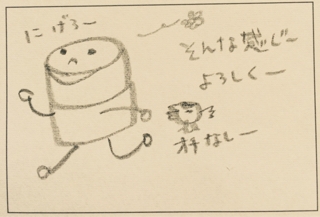 にげろー
そんな感じー
よろしくー
枠なしー